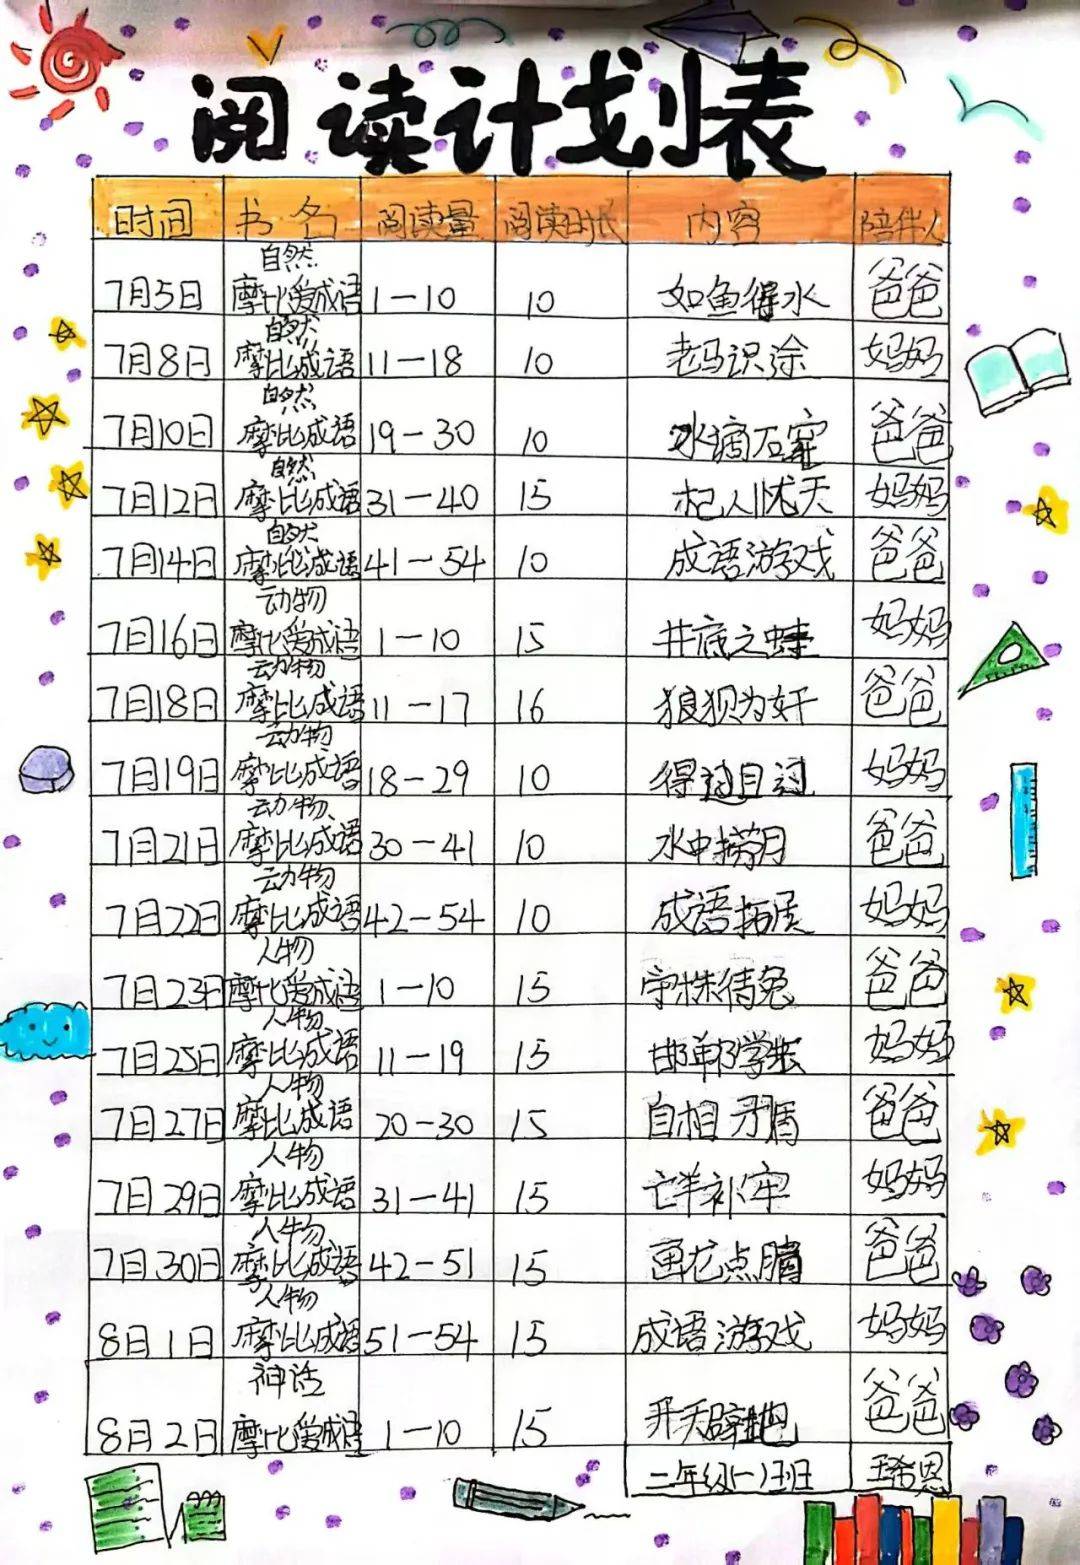 阅读计划表
时间 书名 阅读量 阅读时长 内容 陪伴人
自然
7月5日 摩比爱成语 1—10 10 如鱼得水 爸爸
自然
7月8日 摩比成语 11—18 10 老马识途 妈妈
自然
7月10日 摩比成语 19—30 10 水滴石穿 爸爸
自然
7月12日 摩比成语 31—40 15 杞人忧天 妈妈
自然
7月14日 摩比成语 41—54 10 成语游戏 爸爸
动物
7月16日 摩比爱成语 1—10 15 井底之蛙 妈妈
动物
7月18日 摩比成语 11—17 16 狼狈为奸 爸爸
动物
7月19日 摩比成语 18—29 10 得过且过 妈妈
动物
7月21日 摩比成语 30—41 10 水中捞月 爸爸
动物
7月22日 摩比成语 42—54 10 成语拓展 妈妈
人物
7月23日 摩比爱成语 1—10 15 守株待兔 爸爸
人物
7月25日 摩比成语 11—19 15 邯郸学步 妈妈
人物
7月27日 摩比成语 20—30 15 自相矛盾 爸爸
人物
7月29日 摩比成语 31—41 15 亡羊补牢 妈妈
人物
7月30日 摩比成语 42—51 15 画龙点睛 爸爸
人物
8月1日 摩比成语 51—54 15 成语游戏 妈妈
神话
8月2日 摩比爱成语 1—10 15 开天辟地 爸爸
二年级(一)班 王希恩